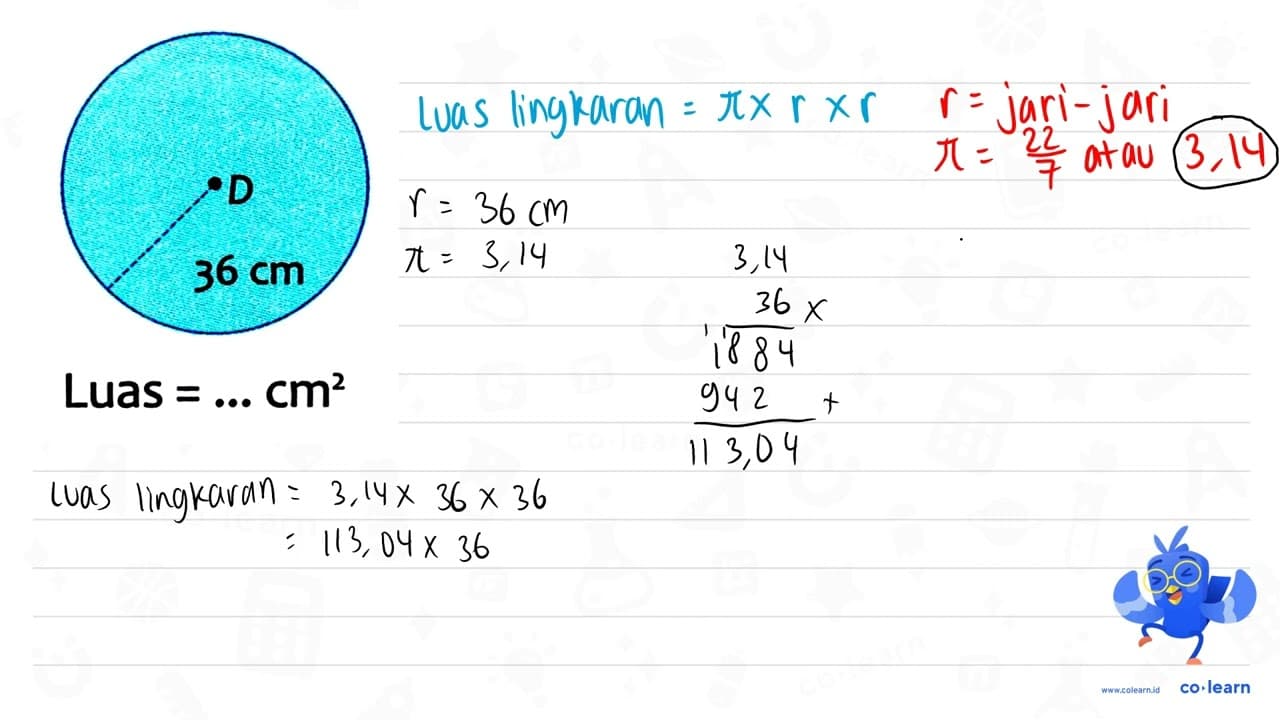 D
36 cm
Luas = ... cm²
Luas lingkaran = π × r × r
r = jari-jari
π = 22/7 atau 3,14
r = 36 cm
π = 3,14
3,14
36 ×
1 1
1884
942 +
113,04
Luas lingkaran = 3,14 × 36 × 36
= 113,04 × 36
www.colearn.id
co·learn